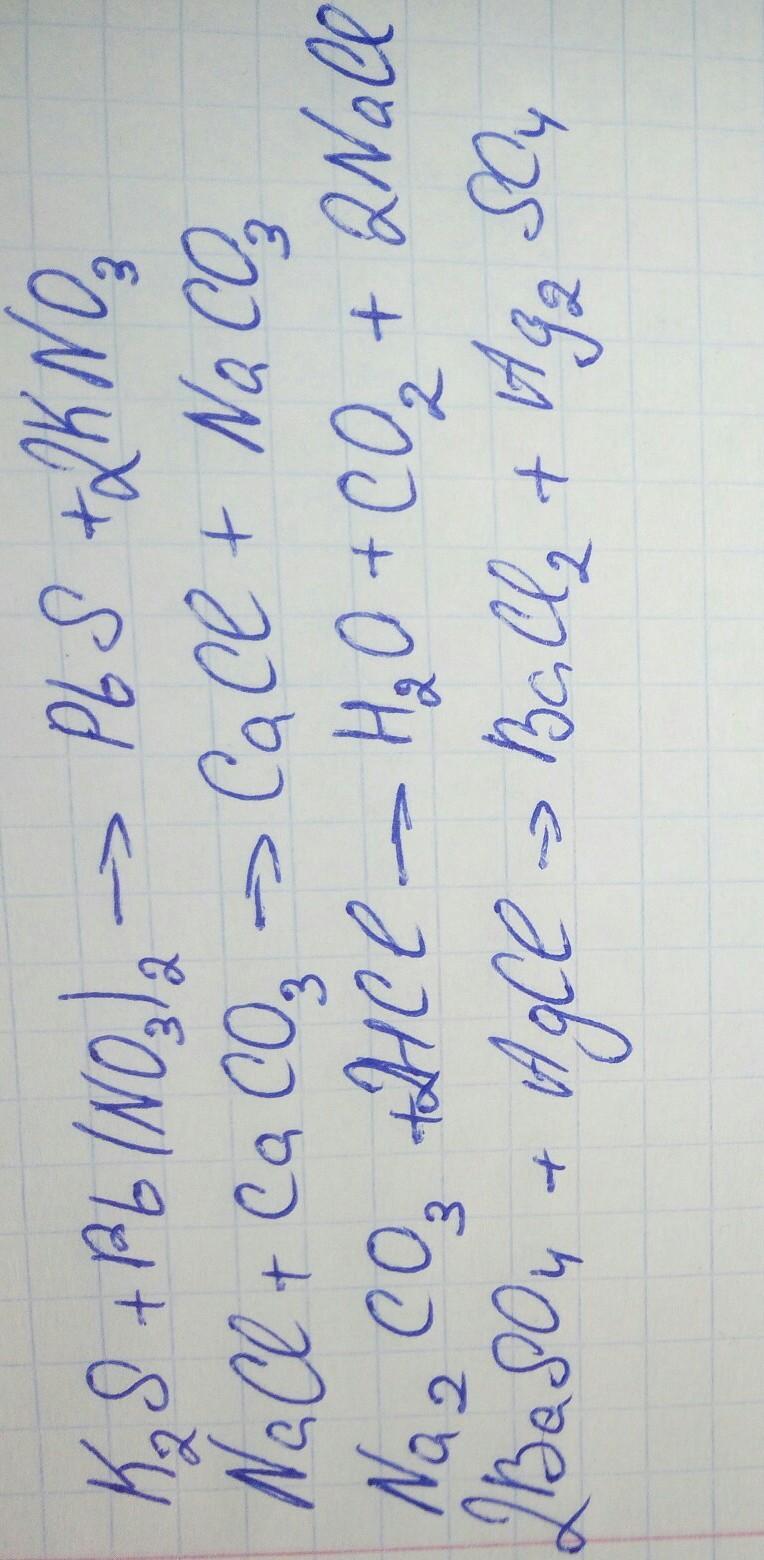 K₂S + Pb(NO₃)₂ → PbS + 2KNO₃
NaCl + CaCO₃ → CaCl + NaCO₃
Na₂CO₃ + 2HCl → H₂O + CO₂ + 2NaCl
2BaSO₄ + AgCl → BaCl₂ + Ag₂SO₄